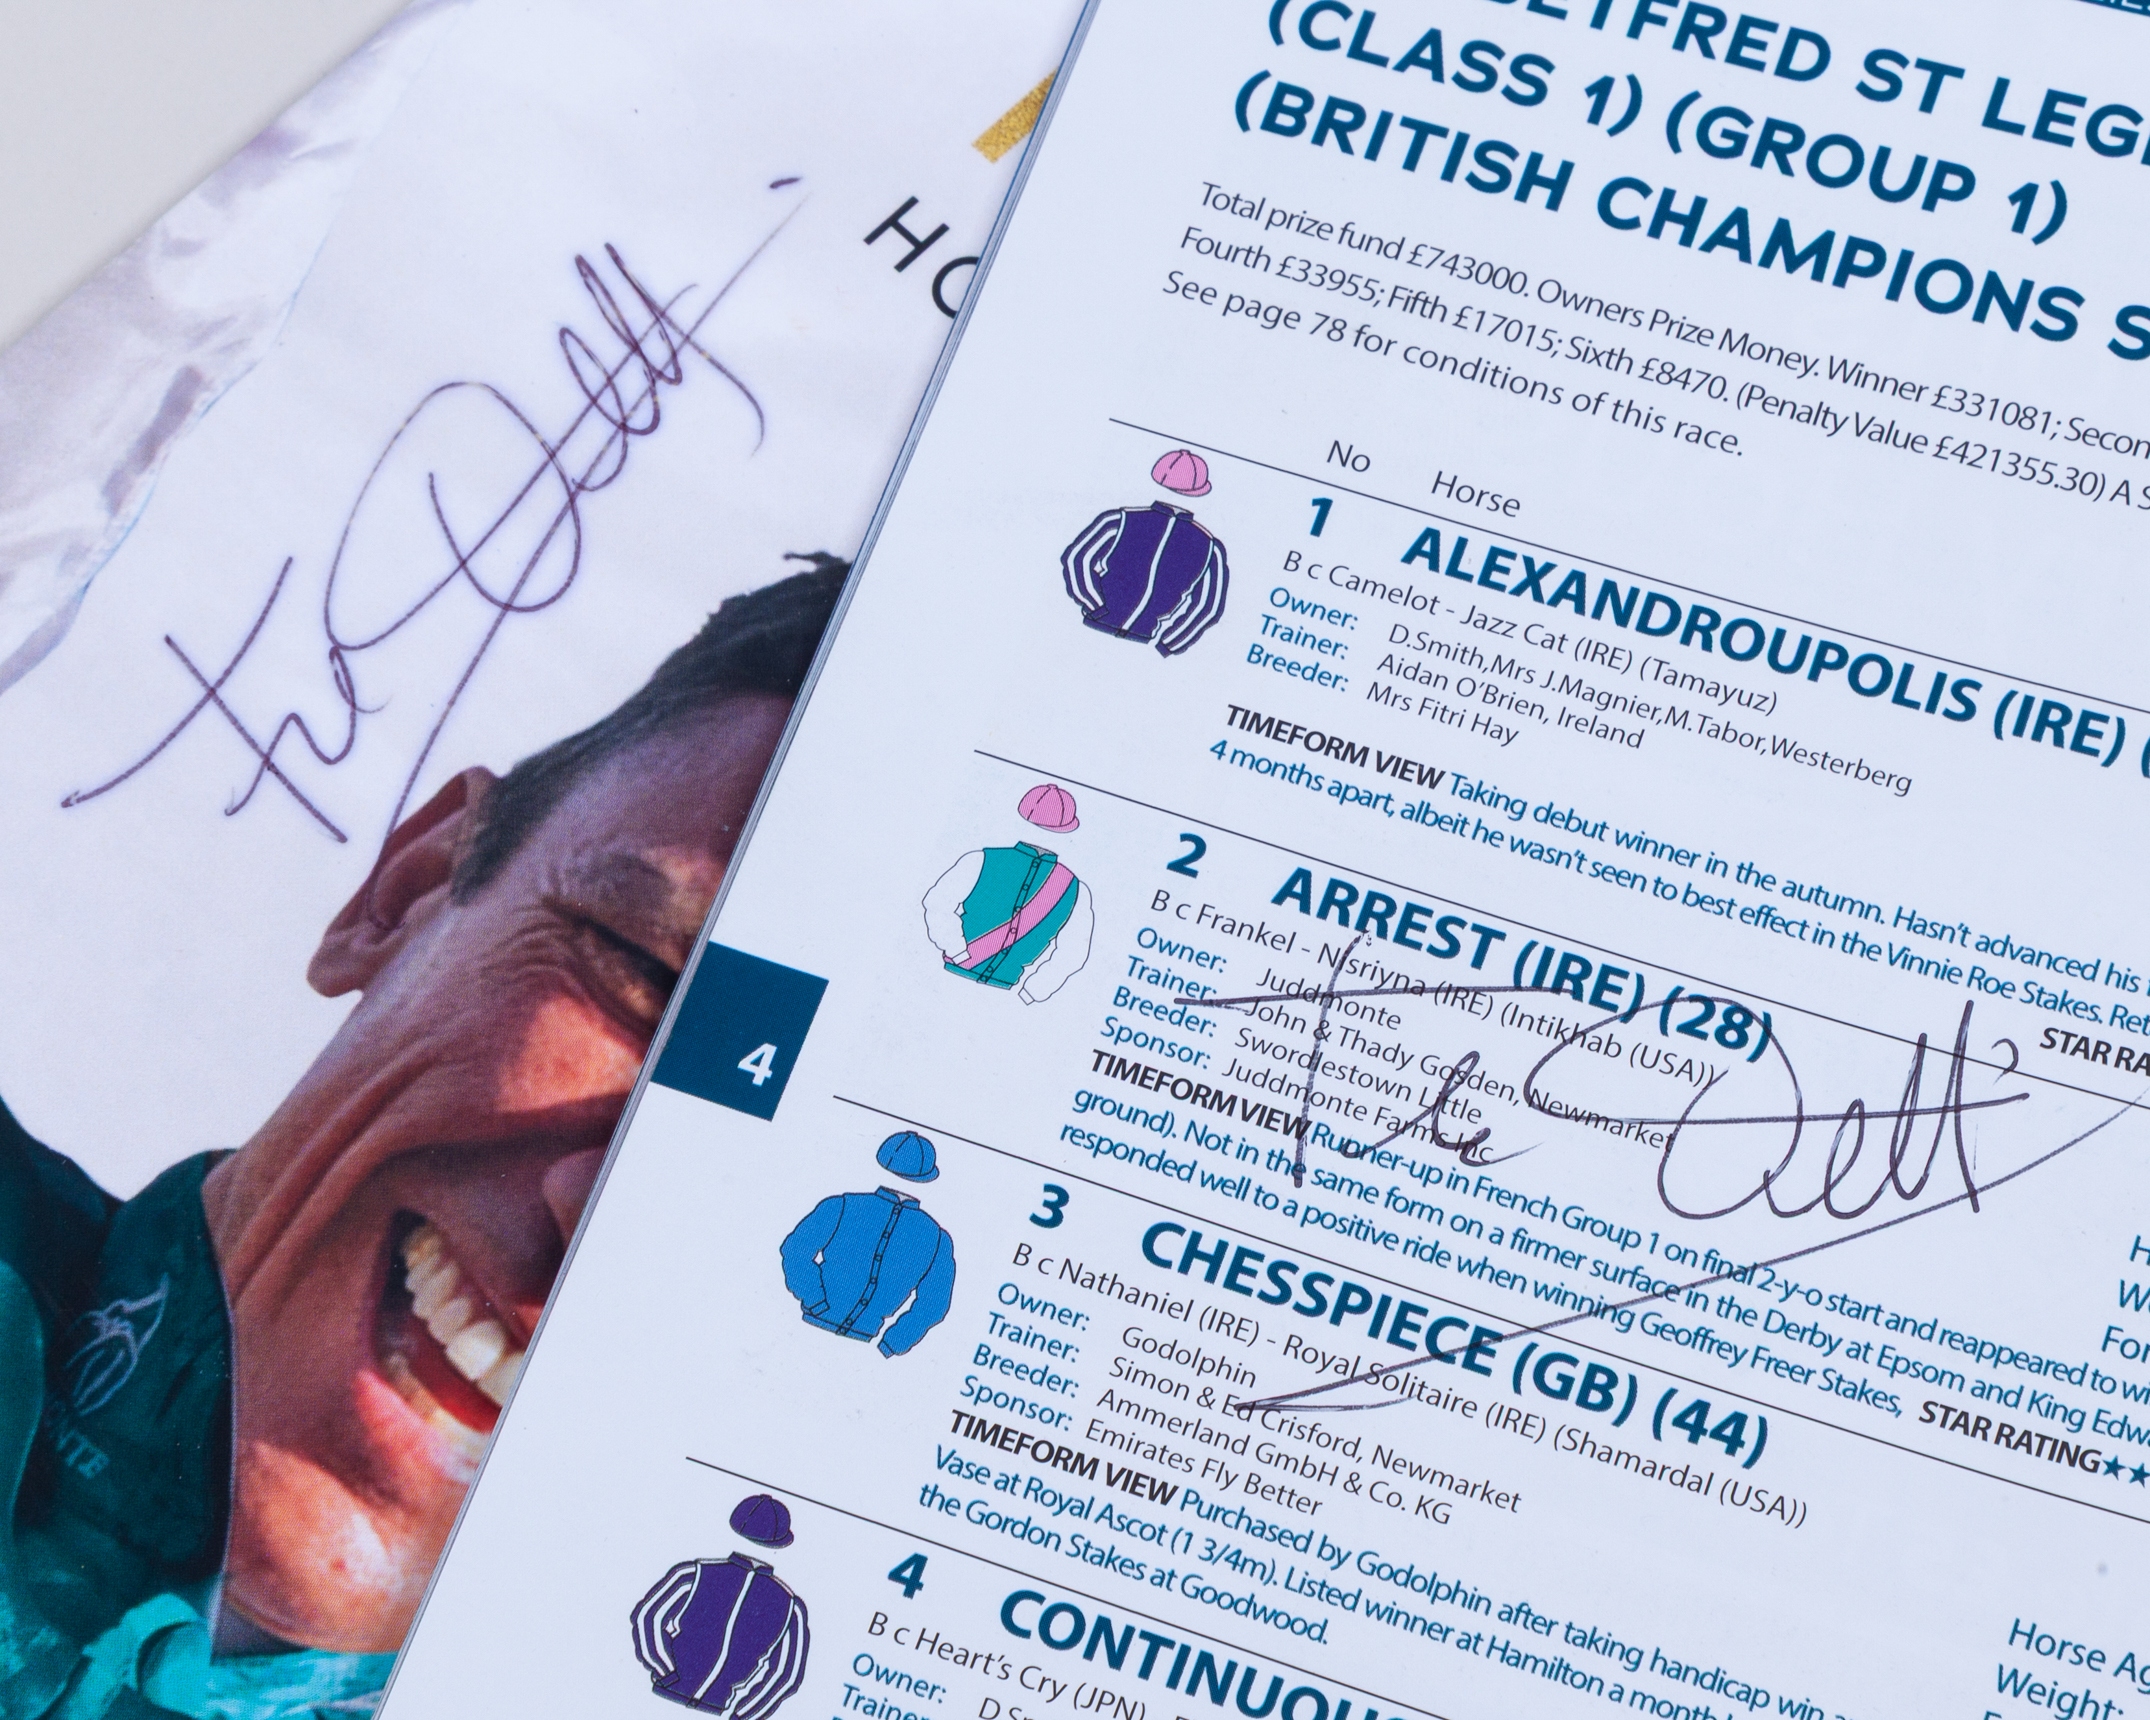 HO
BETFRED ST LEG
(CLASS 1) (GROUP 1)
(BRITISH CHAMPIONS S
Total prize fund £743000. Owners Prize Money. Winner £331081; Secon
Fourth £33955; Fifth £17015; Sixth £8470. (Penalty Value £421355.30) A S
See page 78 for conditions of this race.
No Horse
1 ALEXANDROUPOLIS (IRE) (
B c Camelot - Jazz Cat (IRE) (Tamayuz)
Owner: D.Smith,Mrs J.Magnier,M.Tabor,Westerberg
Trainer: Aidan O'Brien, Ireland
Breeder: Mrs Fitri Hay
TIMEFORM VIEW Taking debut winner in the autumn. Hasn't advanced his
4 months apart, albeit he wasn't seen to best effect in the Vinnie Roe Stakes. Ret
STAR RA
2 ARREST (IRE) (28)
B c Frankel - Nisriyna (IRE) (Intikhab (USA))
Owner: Juddmonte
Trainer: John & Thady Gosden, Newmarket
Breeder: Swordlestown Little
Sponsor: Juddmonte Farms Inc
TIMEFORM VIEW Runner-up in French Group 1 on final 2-y-o start and reappeared to wi
ground). Not in the same form on a firmer surface in the Derby at Epsom and King Edw
responded well to a positive ride when winning Geoffrey Freer Stakes,
STAR RATING★★
H
W
For
3 CHESSPIECE (GB) (44)
B c Nathaniel (IRE) - Royal Solitaire (IRE) (Shamardal (USA))
Owner: Godolphin
Trainer: Simon & Ed Crisford, Newmarket
Breeder: Ammerland GmbH & Co. KG
Sponsor: Emirates Fly Better
TIMEFORM VIEW Purchased by Godolphin after taking handicap win
Vase at Royal Ascot (1 3/4m). Listed winner at Hamilton a month
the Gordon Stakes at Goodwood.
Horse Ag
Weight:
4 CONTINUOU
B c Heart's Cry (JPN)
Owner:
Trainer
4